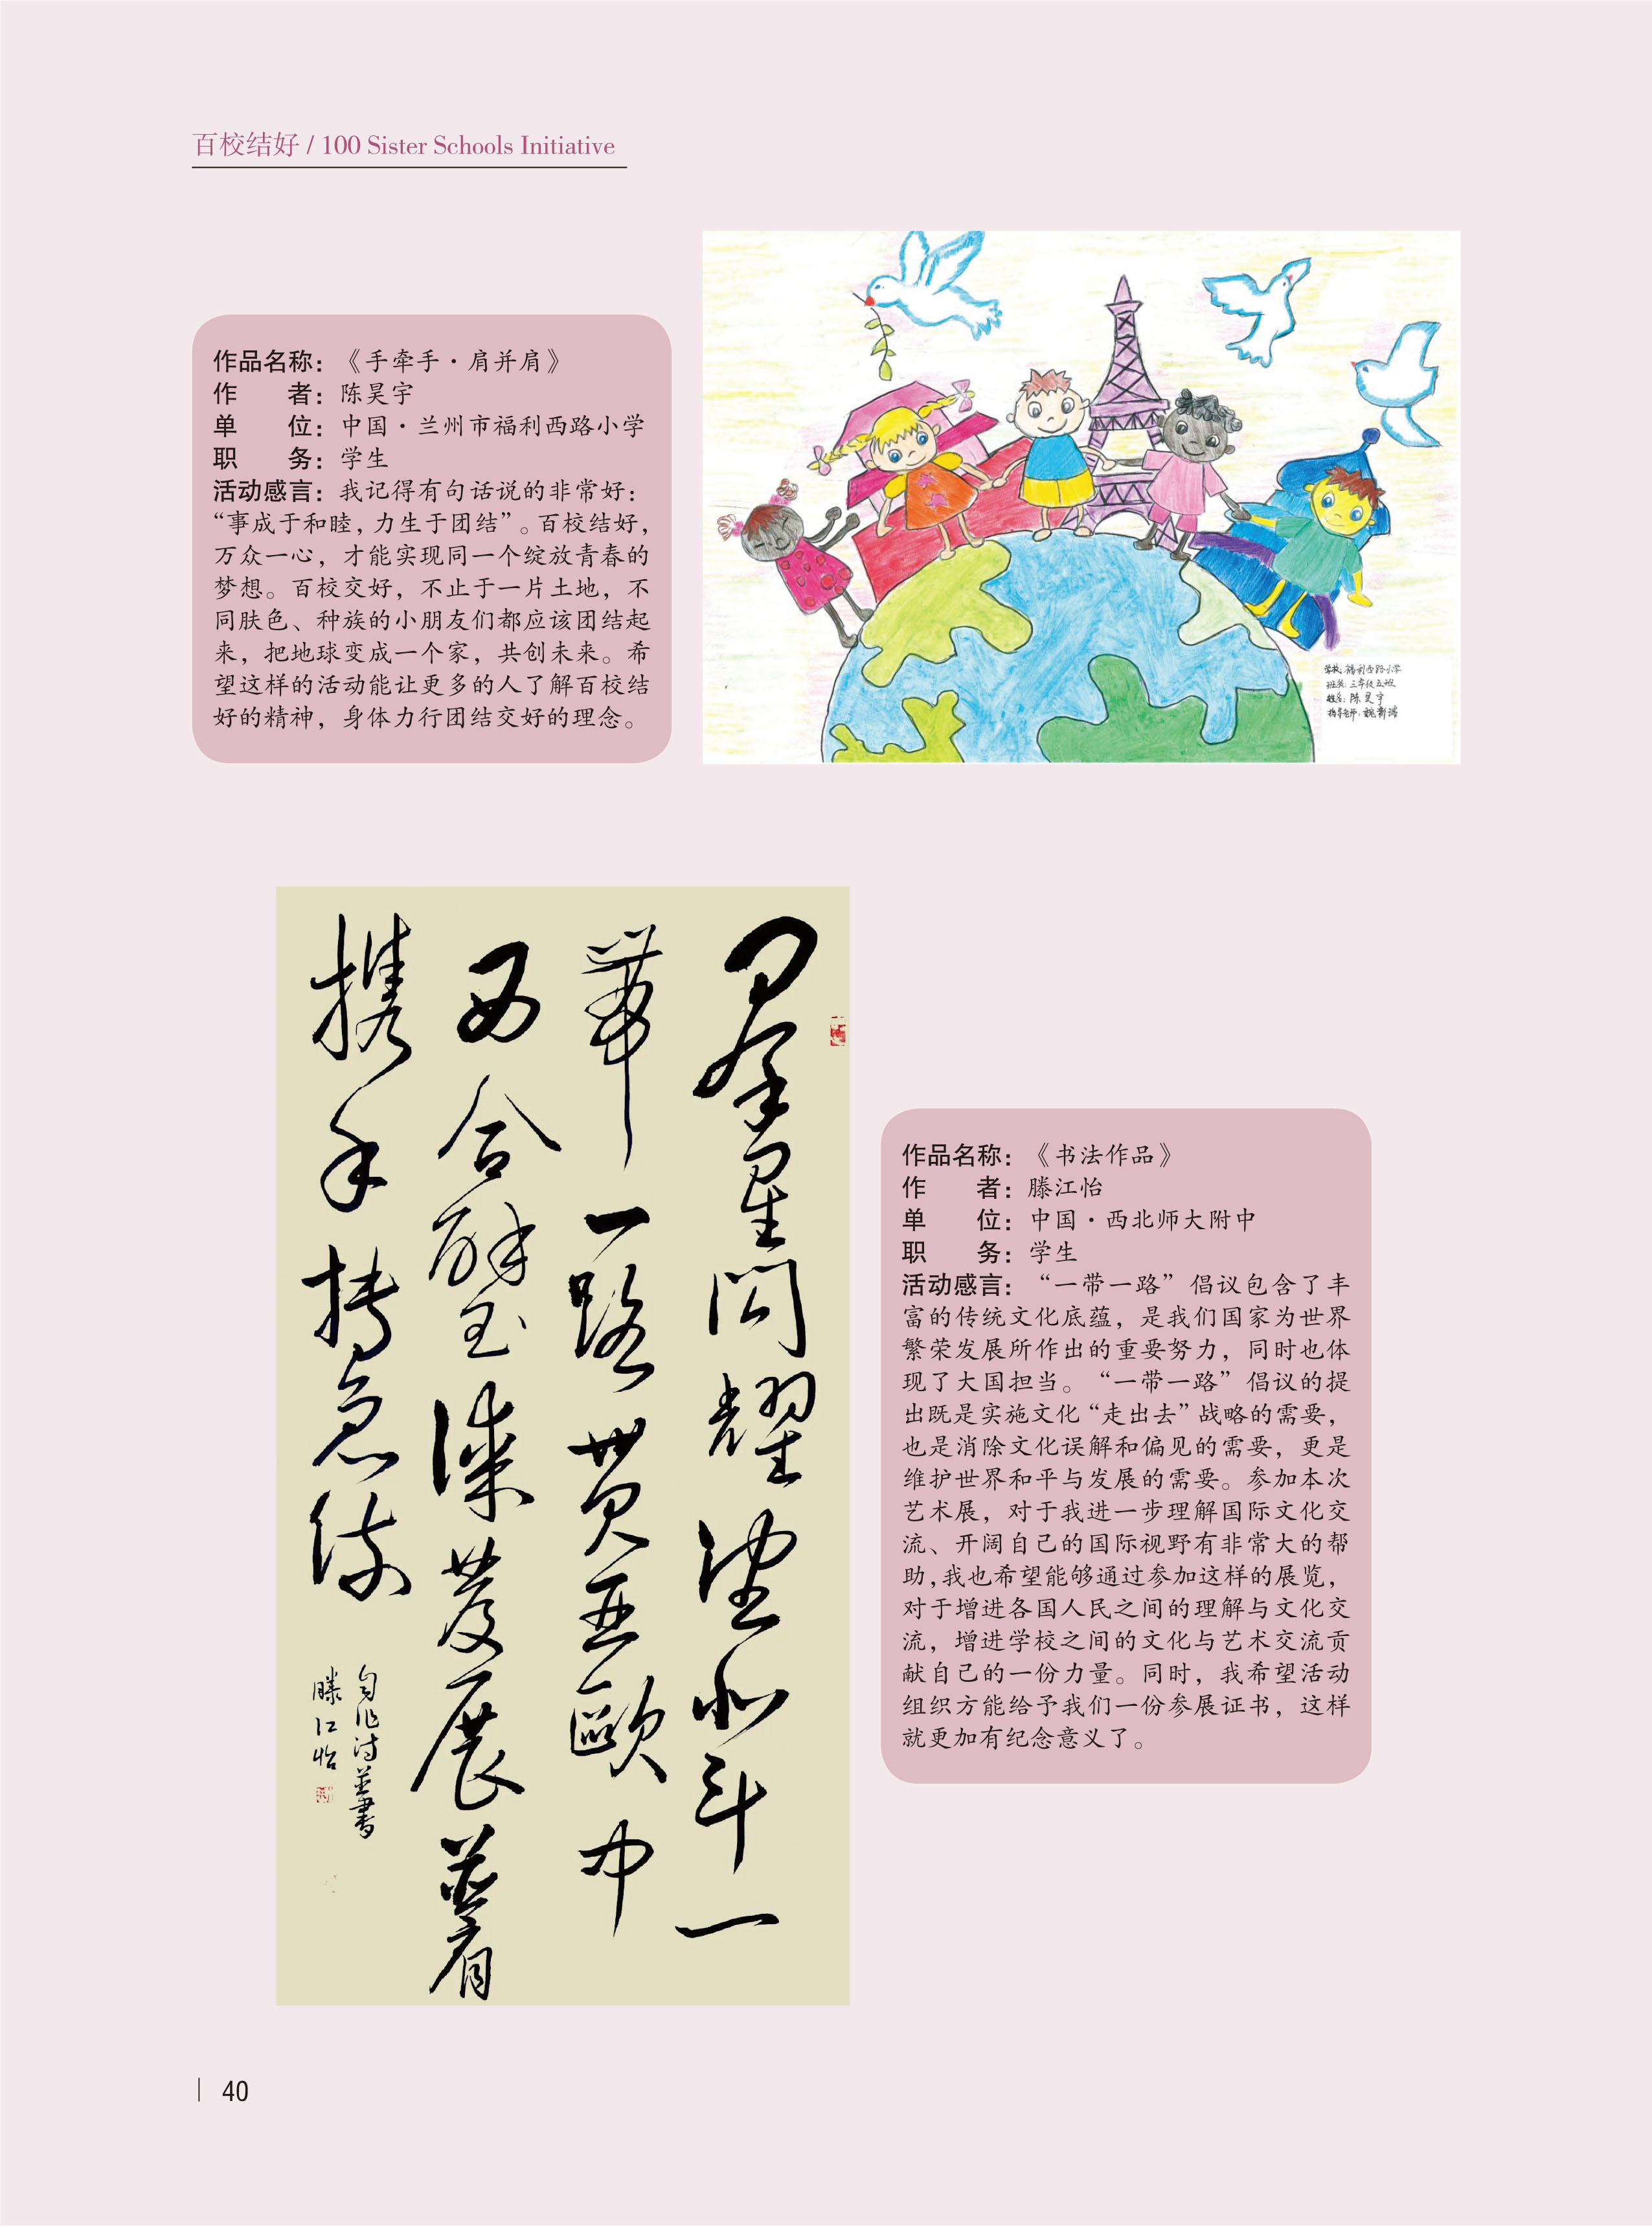 百校结好 / 100 Sister Schools Initiative
作品名称：《手牵手·肩并肩》
作　　者：陈昊宇
单　　位：中国·兰州市福利西路小学
职　　务：学生
活动感言：我记得有句话说的非常好：
“事成于和睦，力生于团结”。百校结好，
万众一心，才能实现同一个绽放青春的
梦想。百校交好，不止于一片土地，不
同肤色、种族的小朋友们都应该团结起
来，把地球变成一个家，共创未来。希
望这样的活动能让更多的人了解百校结
好的精神，身体力行团结交好的理念。
学校：福利西路小学
班级：三年级五班
姓名：陈昊宇
指导老师：魏新
羣星閃耀望北斗一
帶一路貫亞歐中
西合璧謀發展並肩
携手搏急流
自作诗並書
滕江怡
作品名称：《书法作品》
作　　者：滕江怡
单　　位：中国·西北师大附中
职　　务：学生
活动感言：“一带一路”倡议包含了丰
富的传统文化底蕴，是我们国家为世界
繁荣发展所作出的重要努力，同时也体
现了大国担当。“一带一路”倡议的提
出既是实施文化“走出去”战略的需要，
也是消除文化误解和偏见的需要，更是
维护世界和平与发展的需要。参加本次
艺术展，对于我进一步理解国际文化交
流、开阔自己的国际视野有非常大的帮
助，我也希望能够通过参加这样的展览，
对于增进各国人民之间的理解与文化交
流，增进学校之间的文化与艺术交流贡
献自己的一份力量。同时，我希望活动
组织方能给予我们一份参展证书，这样
就更加有纪念意义了。
40